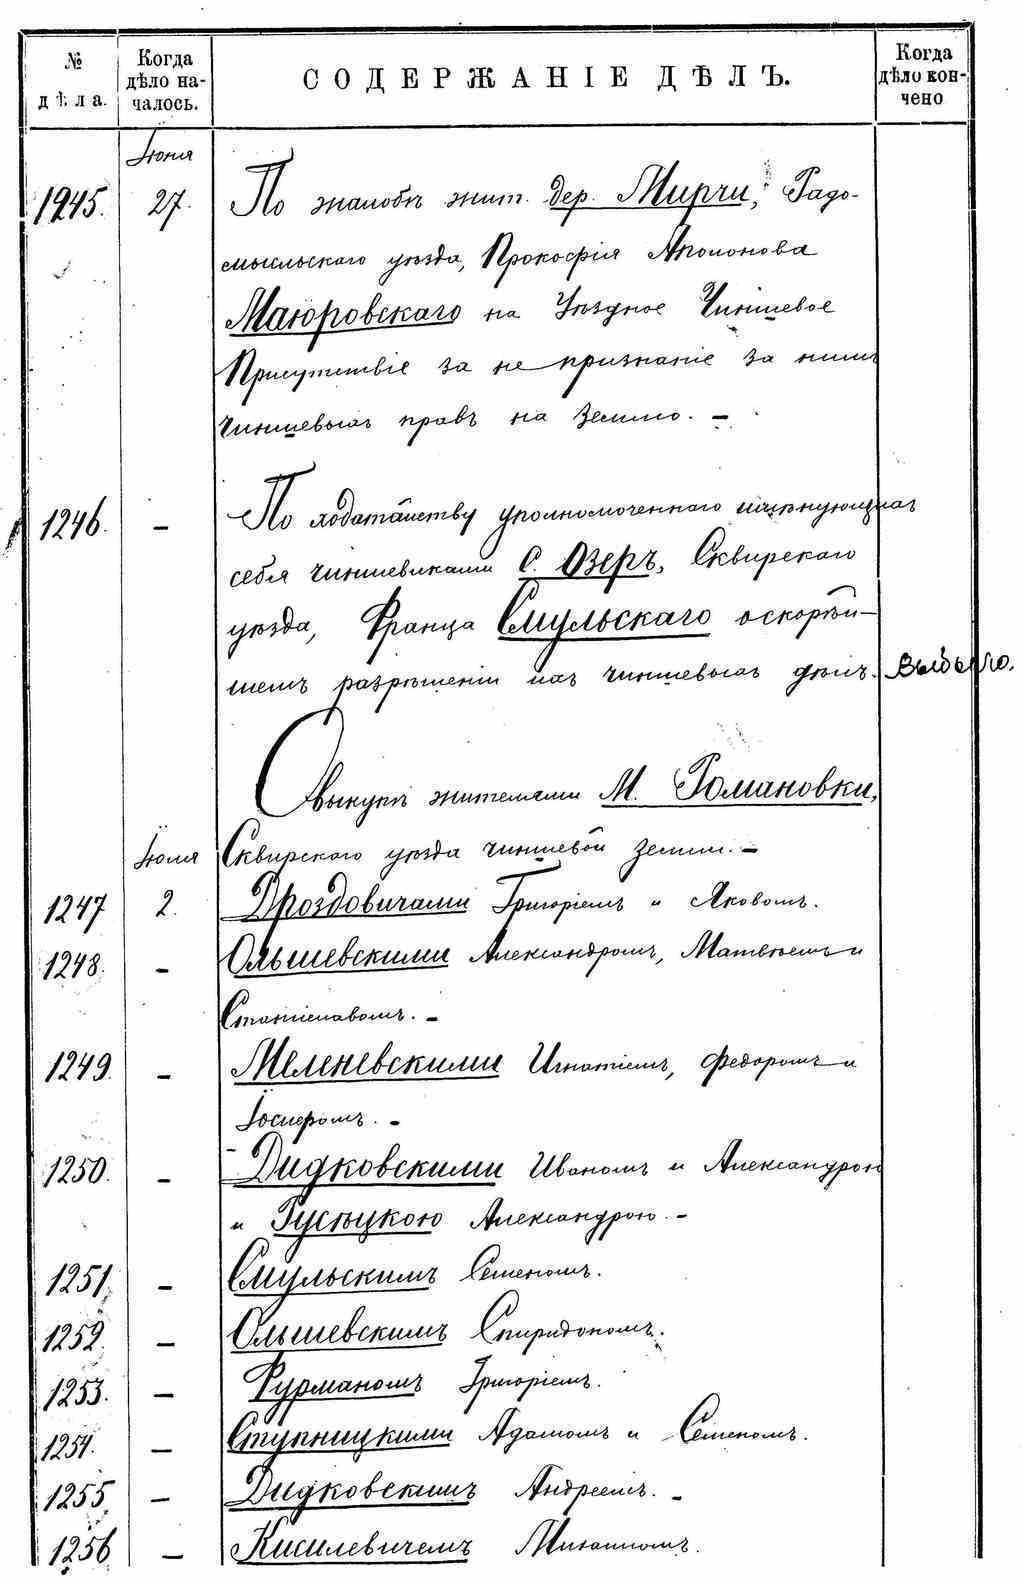 № дѣла. Когда дѣло началось. СОДЕРЖАНІЕ ДѢЛЪ. Когда дѣло кончено
Іюня
1245. 27. По жалобѣ жит. дер. Мирчи, Радо-
мысльскаго уѣзда, Прокофія Аполонова
Маюровскаго на Уѣздное Чиншевое
Присутствіе за не признаніе за нимъ
чиншевыхъ правъ на землю. –
1246. – По ходатайству уполномоченнаго имѣнующихъ
себя чиншевиками С. Озеръ, Сквирскаго
уѣзда, Франца Смульскаго о скорѣй-
шемъ разрѣшеніи ихъ чиншевыхъ дѣлъ. Выбыло.
О выкупѣ жителями М. Романовки,
Іюля Сквирскаго уѣзда чиншевой земли. –
1247 2. Дроздовичами Григоріемъ и Яковомъ.
1248. – Ольшевскими Александромъ, Матвѣемъ и
Станиславомъ. –
1249. – Меленевскими Игнатіемъ, Федоромъ и
Іосифомъ. –
1250. – Дидковскими Иваномъ и Александрою
и Гусѣцкою Александрою. –
1251. – Смульскимъ Семеномъ.
1252. – Ольшевскимъ Спиридономъ.
1253. – Фурманомъ Григоріемъ.
1254. – Ступницкими Адамомъ и Семеномъ.
1255. – Дидковскимъ Андреемъ. –
1256 – Кисилевичемъ Михаиломъ.